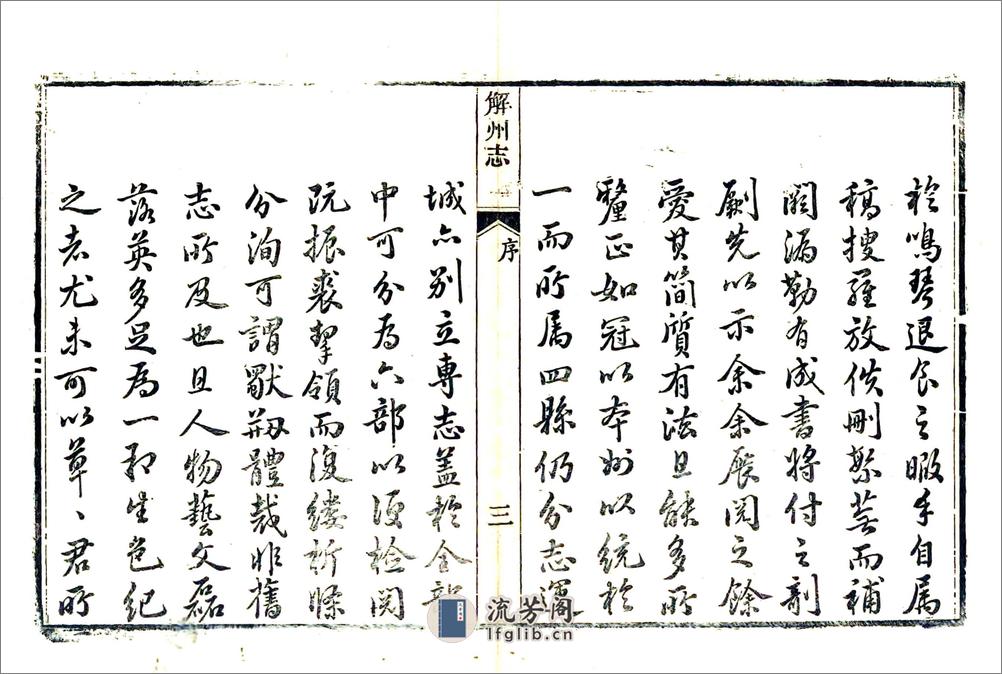 於鳴琴退食之暇手自属
稿搜羅放佚刪繁蕪而補
闕漏勒有成書將付之剞
劂先以示余余展閱之餘
愛其簡質有法且能多所
釐正如冠以本州以統於
一而所属四縣仍分志運
解州志
序
三
城亦别立專志蓋於全部
中可分為六部以便檢閱
既振裘挈領而復縷析條
分洵可謂體裁非舊
志所及也且人物藝文磊
落英多足為一邦生色紀
之者尤未可以草〻君所
流芳阁
lfglib.cn